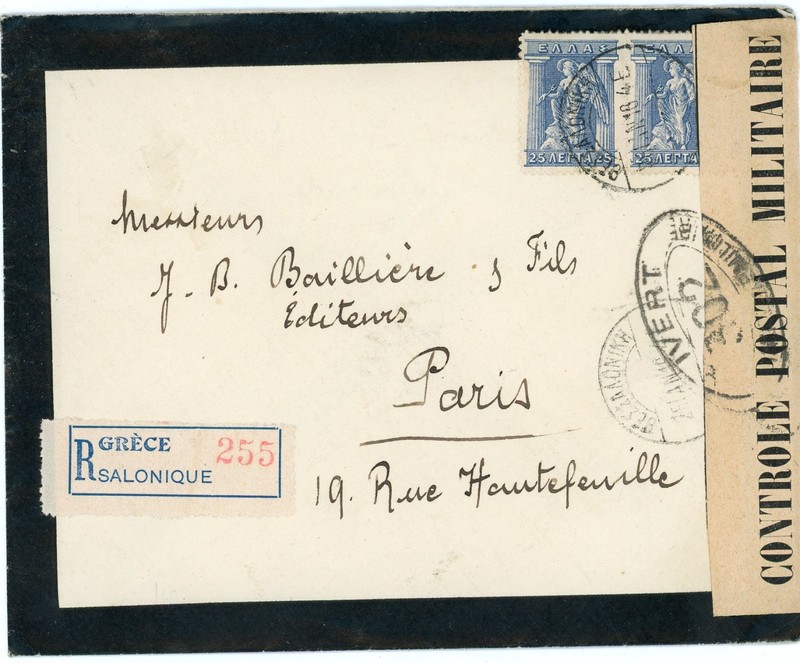 ΕΛΛΑΣ
ΕΛΛΑΣ
25 ΛΕΠΤΑ 25
25 ΛΕΠΤΑ
Messieurs
J. B. Baillière & Fils
Éditeurs
Paris
19. Rue Hautefeuille
R
GRÈCE
SALONIQUE
255
ΘΕΣΣΑΛΟΝΙΚΗ
CONTROLE POSTAL MILITAIRE